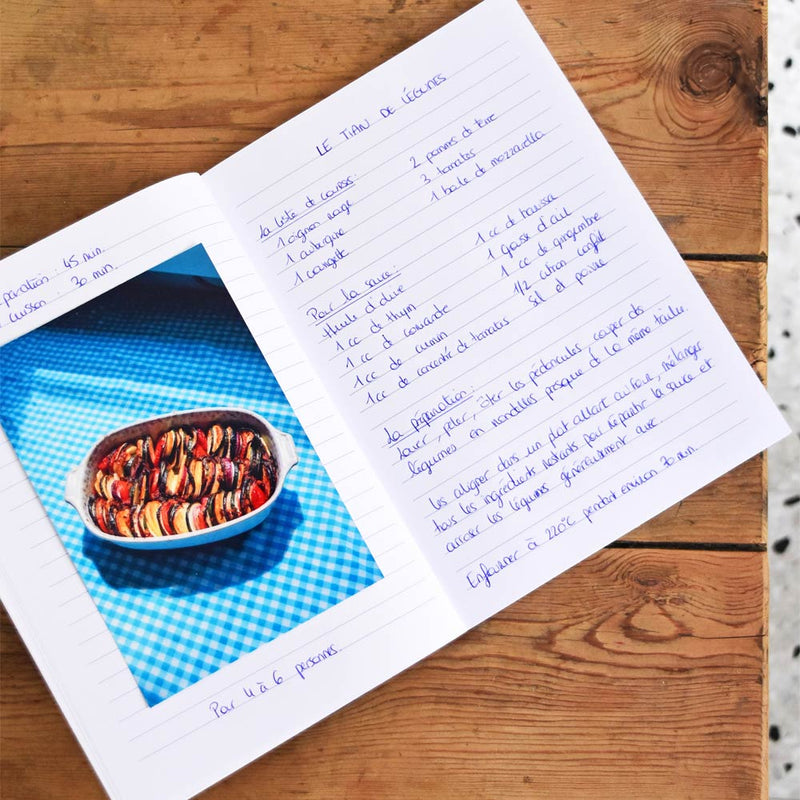 paration : 45 min.
cuisson : 30 min.
Pour 4 à 6 personnes.
LE TIAN DE LÉGUMES
La liste de courses :
1 oignon rouge
1 aubergine
1 courgette
2 pommes de terre
3 tomates
1 boule de mozzarella
Pour la sauce :
Huile d'olive
1 cc de thym
1 cc de coriandre
1 cc de cumin
1 cc de concentré de tomates
1 cc de harissa
1 gousse d'ail
1 cc de gingembre
1/2 citron confit
Sel et poivre
La préparation :
Laver, peler, ôter les pédoncules, couper les
légumes en rondelles presque de la même taille.
Les aligner dans un plat allant au four, mélanger
tous les ingrédients restants pour répartir la sauce et
arroser les légumes généreusement avec.
Enfourner à 220°C pendant environ 30 min.